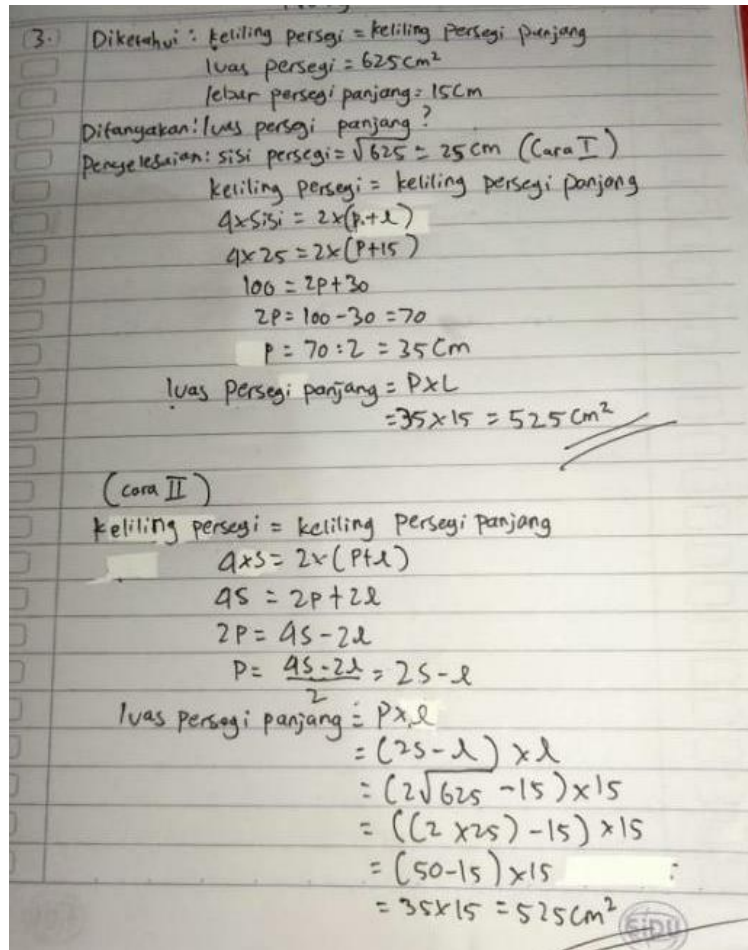 3. Diketahui : keliling persegi = keliling persegi panjang
luas persegi = 625 cm²
lebar persegi panjang = 15 cm
Ditanyakan : luas persegi panjang ?
Penyelesaian : sisi persegi = √625 = 25 cm (Cara I)
keliling persegi = keliling persegi panjang
4 x sisi = 2 x (p + l)
4 x 25 = 2 x (P + 15)
100 = 2p + 30
2P = 100 - 30 = 70
P = 70 : 2 = 35 Cm
luas persegi panjang = P x L
= 35 x 15 = 525 cm²
(cara II)
keliling persegi = keliling persegi panjang
4 x s = 2 x (P + l)
4s = 2p + 2l
2P = 4s - 2l
P = (4s - 2l)/2 = 2s - l
luas persegi panjang = P x l
= (2s - l) x l
= (2√625 - 15) x 15
= ((2 x 25) - 15) x 15
= (50 - 15) x 15
= 35 x 15 = 525 cm²
SiDU